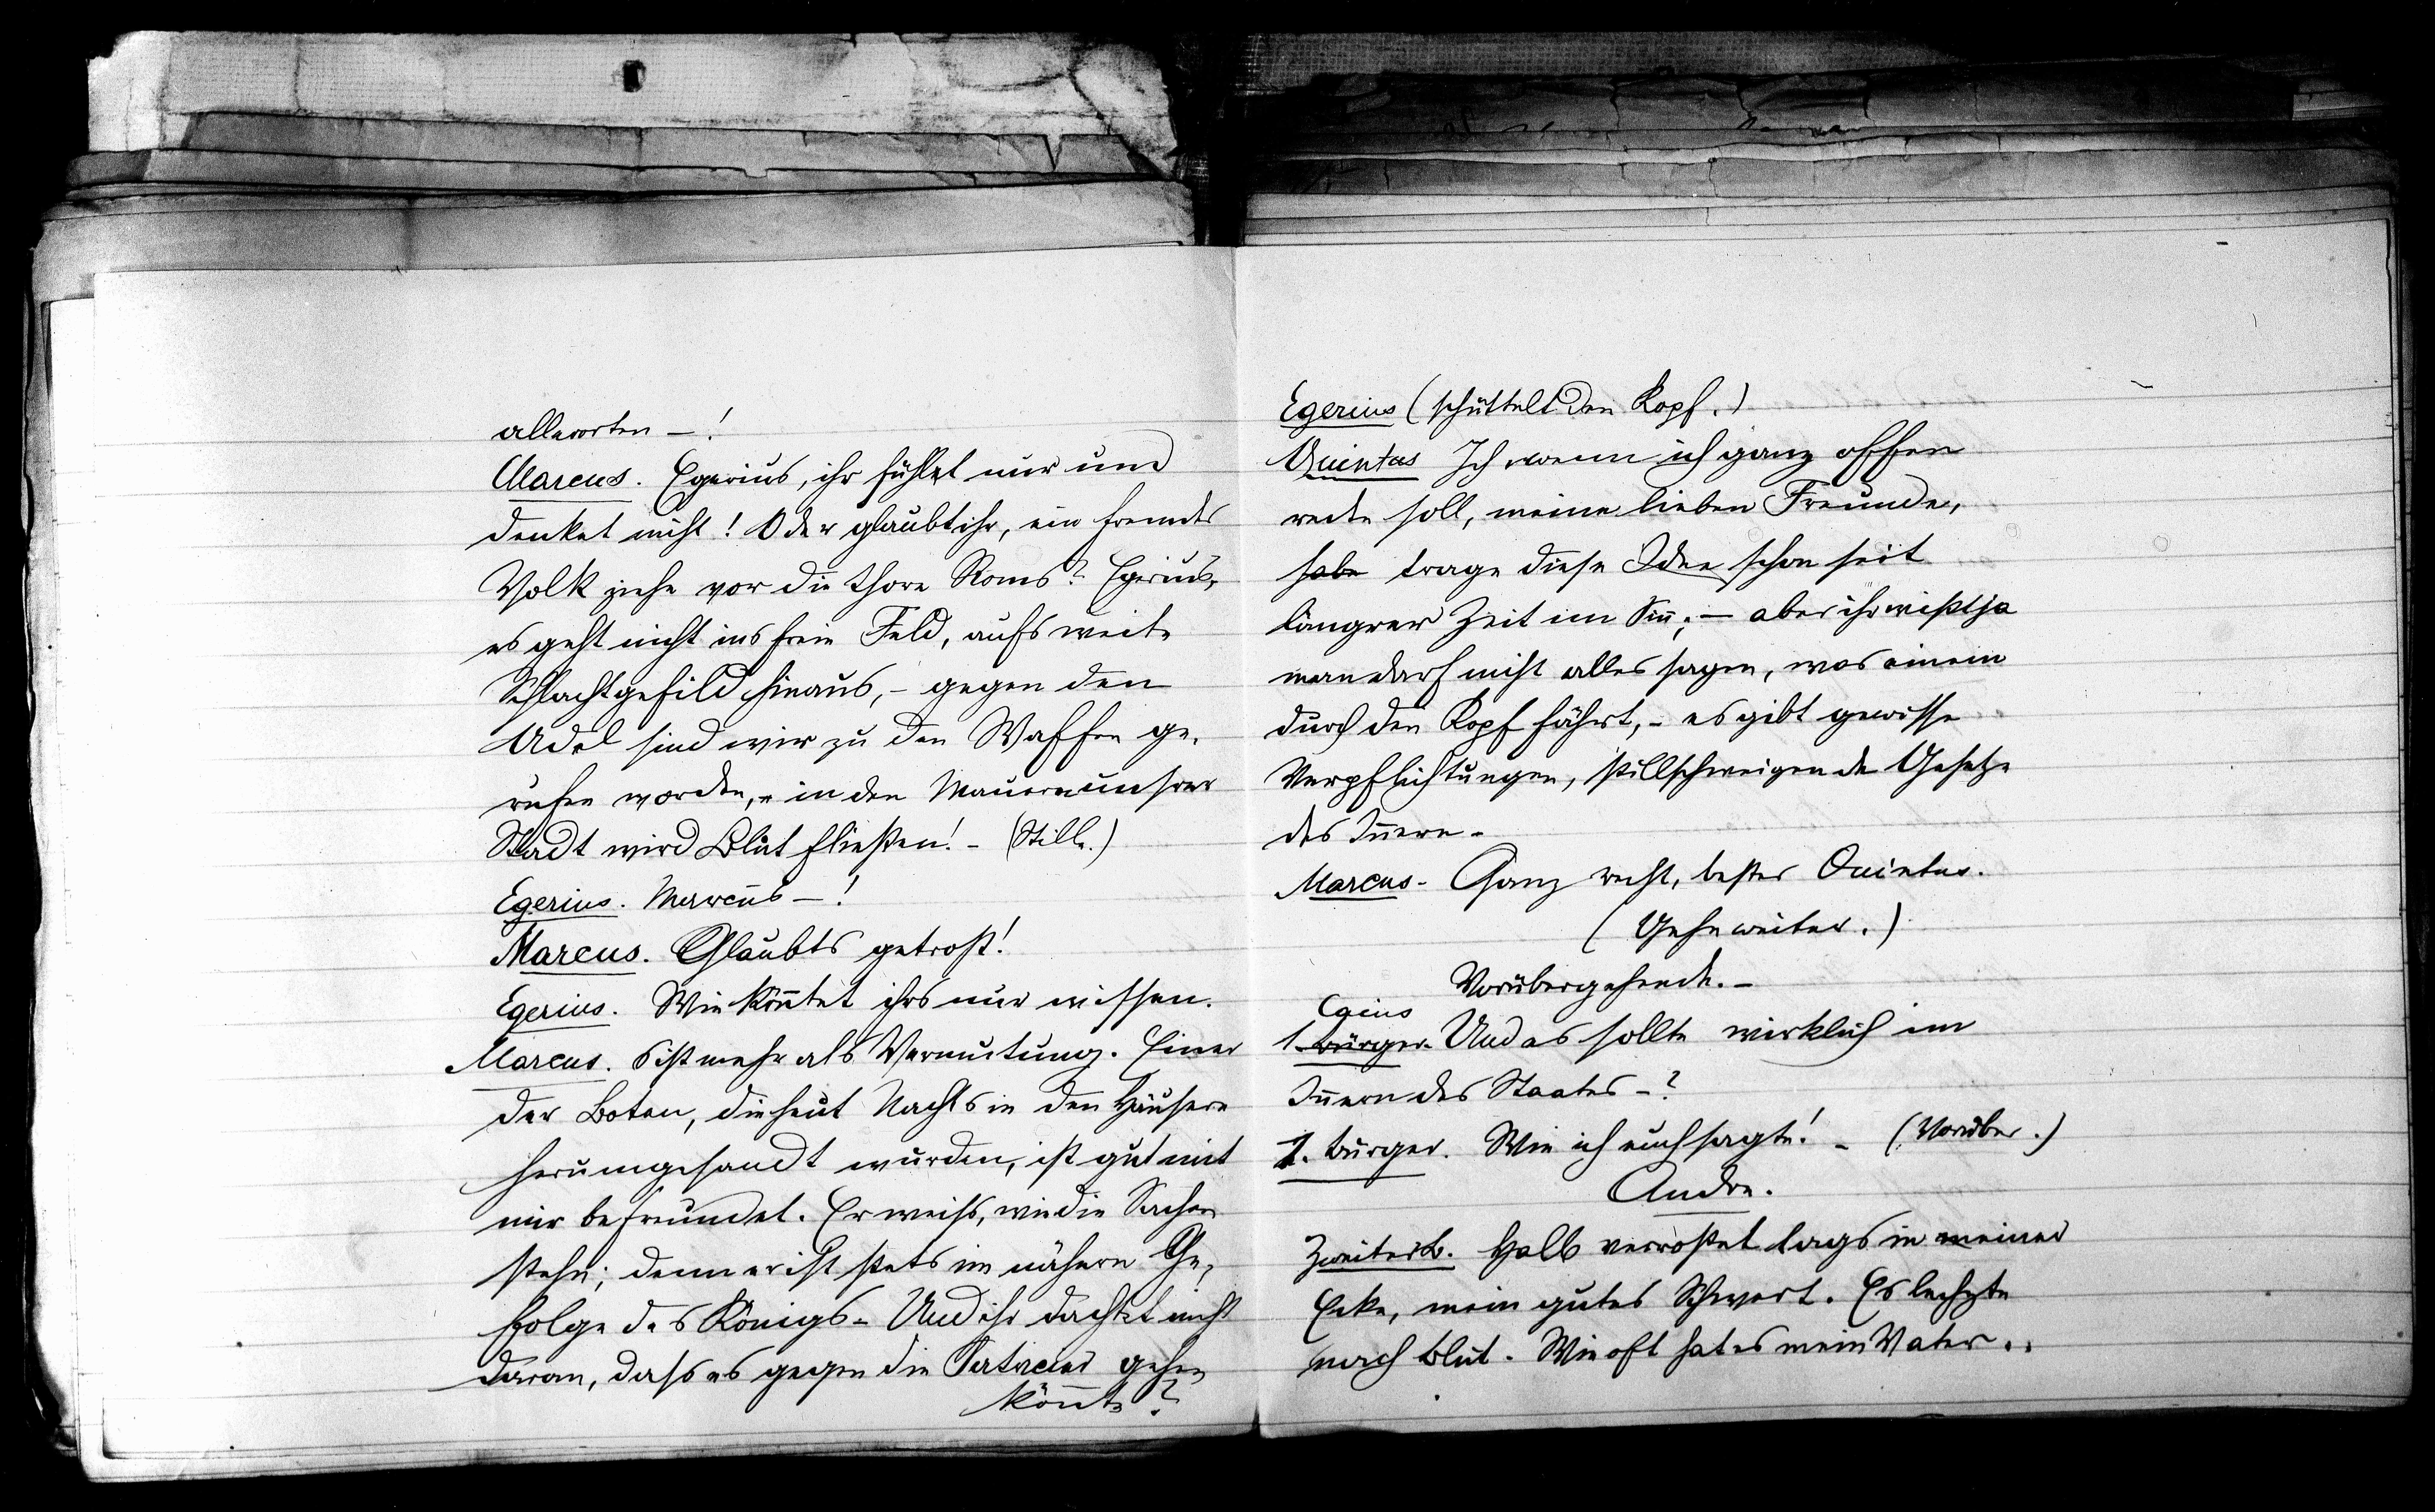 allerorten –!
Marcus. Egerius, ihr fühlet nur und
denket nicht! Oder glaubt ihr, ein fremdes
Volk ziehe vor die Thore Roms? Egerius,
es geht nicht ins freie Feld, aufs weite
Schlachtgefild hinaus, – gegen den
Adel sind wir zu den Waffen ge-
rufen worden, – in den Mauern unsrer
Stadt wird Blut fließen! – (Stille.)
Egerius. Marcus –!
Marcus. Glaubts getrost!
Egerius. Wie könntet ihrs nur wissen.
Marcus. S ist mehr als Vermutung. Einer
der Boten, die heut Nachts in den Häusern
herumgesandt wurden, ist gut mit
mir befreundet. Er weiß, wie die Sachen
stehn; denn er ist stets im nähern Ge-
folge des Königs. Und ihr dachtet nicht
daran, dass es gegen die Patricier gehen
könnte?
Egerius (schüttelt den Kopf.)
Quintus Ich, wenn ich ganz offen
reden soll, meine lieben Freunde,
habe trage diese Idee schon seit
längrer Zeit im Sinn; – aber ihr wißt ja
man darf nicht alles sagen, was einem
durch den Kopf fährt, – es gibt gewisse
Verpflichtungen, stillschweigende Gesetze
des Innern –
Marcus – Ganz recht, bester Quintus.
(Gehn weiter.)
Vorübergehende. –
Caius
1. Bürger. Und es sollte wirklich im
Innern des Staates –?
1. Bürger. Wie ich euch sagte! – (Vorüber.)
Andre.
Zweiter B. Halb verrostet lags in meiner
Ecke, mein gutes Schwert. Es lechzte
nach Blut. Wie oft hat es mein Vater ..